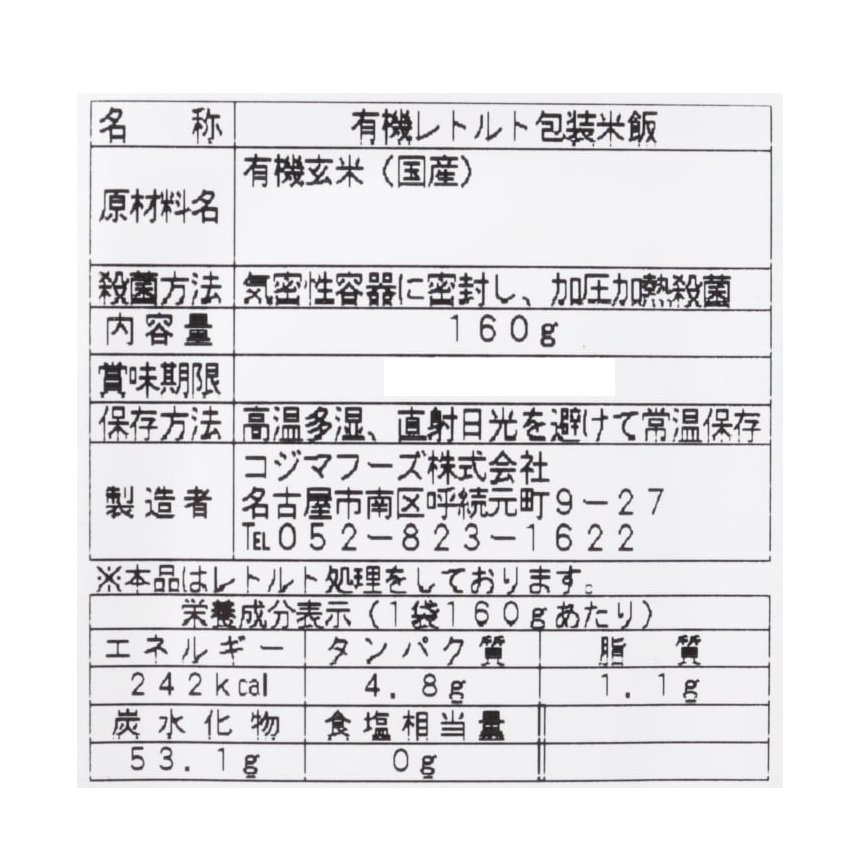 名称 有機レトルト包装米飯
原材料名 有機玄米（国産）
殺菌方法 気密性容器に密封し、加圧加熱殺菌
内容量 160g
賞味期限
保存方法 高温多湿、直射日光を避けて常温保存
製造者 コジマフーズ株式会社
名古屋市南区呼続元町9-27
℡052-823-1622
※本品はレトルト処理をしております。
栄養成分表示（1袋160gあたり）
エネルギー タンパク質 脂質
242kcal 4.8g 1.1g
炭水化物 食塩相当量
53.1g 0g